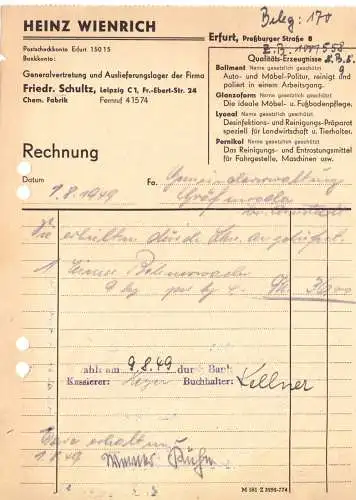 Beleg: 170
HEINZ WIENRICH
Erfurt, Preßburger Straße 8
Postscheckkonto Erfurt 150 15
Bankkonto:
Generalvertretung und Auslieferungslager der Firma
Friedr. Schultz, Leipzig C1, Fr.-Ebert-Str. 24
Chem. Fabrik Fernruf 41574
Qualitäts-Erzeugnisse
Bollment Name gesetzlich geschützt
Auto- und Möbel-Politur, reinigt und
poliert in einem Arbeitsgang.
Glanzoform Name gesetzlich geschützt
Die ideale Möbel- u. Fußbodenpflege.
Lysonal Name gesetzlich geschützt
Desinfektions- und Reinigungs-Präparat
speziell für Landwirtschaft u. Tierhalter.
Pernikol Name gesetzlich geschützt
Das Reinigungs- und Entrostungsmittel
für Fahrgestelle, Maschinen usw.
Rechnung
Datum 1.8.1949 Fa. Gemeindeverwaltung
Sie erhielten durch angeliefert.
1 Eimer Bohnerwachs
9 kg per kg 4.
ahlt am 9.8.49 durch Bank
Kassierer: Buchhalter: Kellner
Ware erhalten
1.8.49 Werner